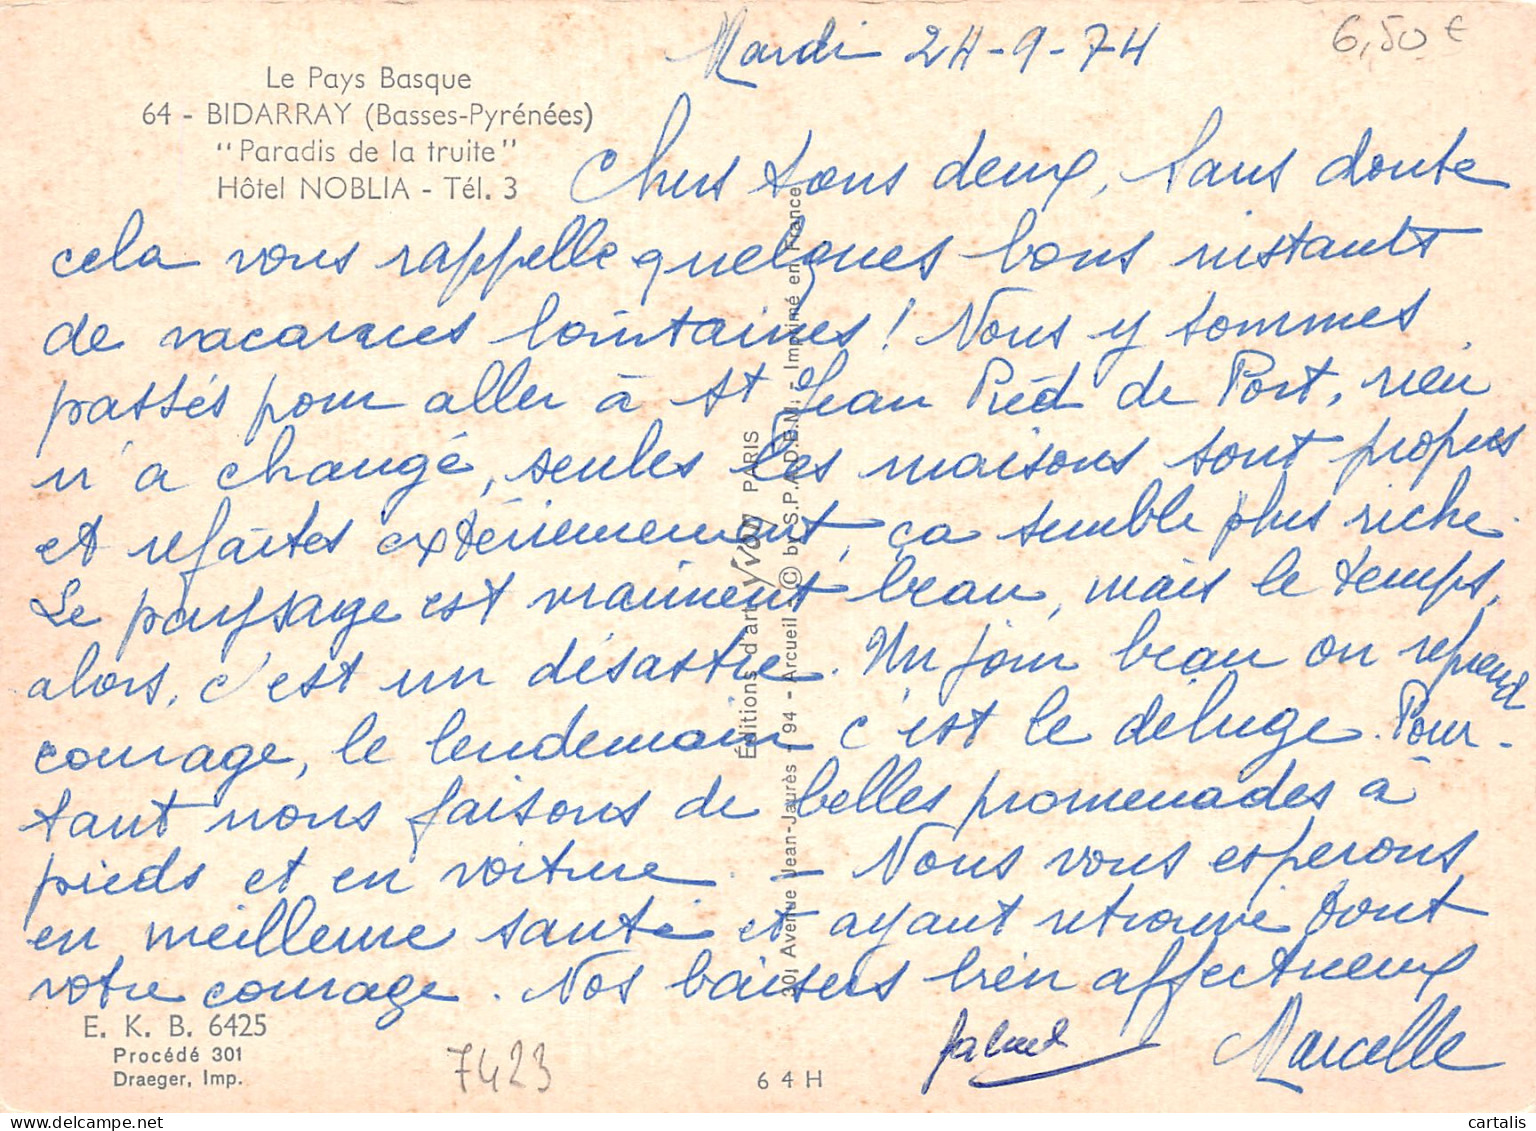 Mardi 24-9-74
6,50€
Le Pays Basque
64 - BIDARRAY (Basses-Pyrénées)
"Paradis de la truite"
Hôtel NOBLIA - Tél. 3
Chers tous deux, Sans doute
cela vous rappelle quelques bons instants
de vacances lointaines ! Nous y sommes
passés pour aller à St Jean Pied de Port, rien
n'a changé, seules les maisons sont propres
et refaites extérieurement, ça semble plus riche.
Le paysage est vraiment beau, mais le temps,
alors, c'est un désastre. Un jour beau on reprend
courage, le lendemain c'est le déluge. Pour-
tant nous faisons de belles promenades à
pieds et en voiture. - Nous vous esperons
en meilleure santé et ayant retrouvé tout
votre courage. Nos baisers bien affectueux
Marcelle
Éditions d'art YVON PARIS
30, Avenue Jean-Jaurès - 94 - Arcueil - © by S.P.A.D.E.M. - Imprimé en France
E. K. B. 6425
Procédé 301
Draeger, Imp.
7423
64H
cartalis